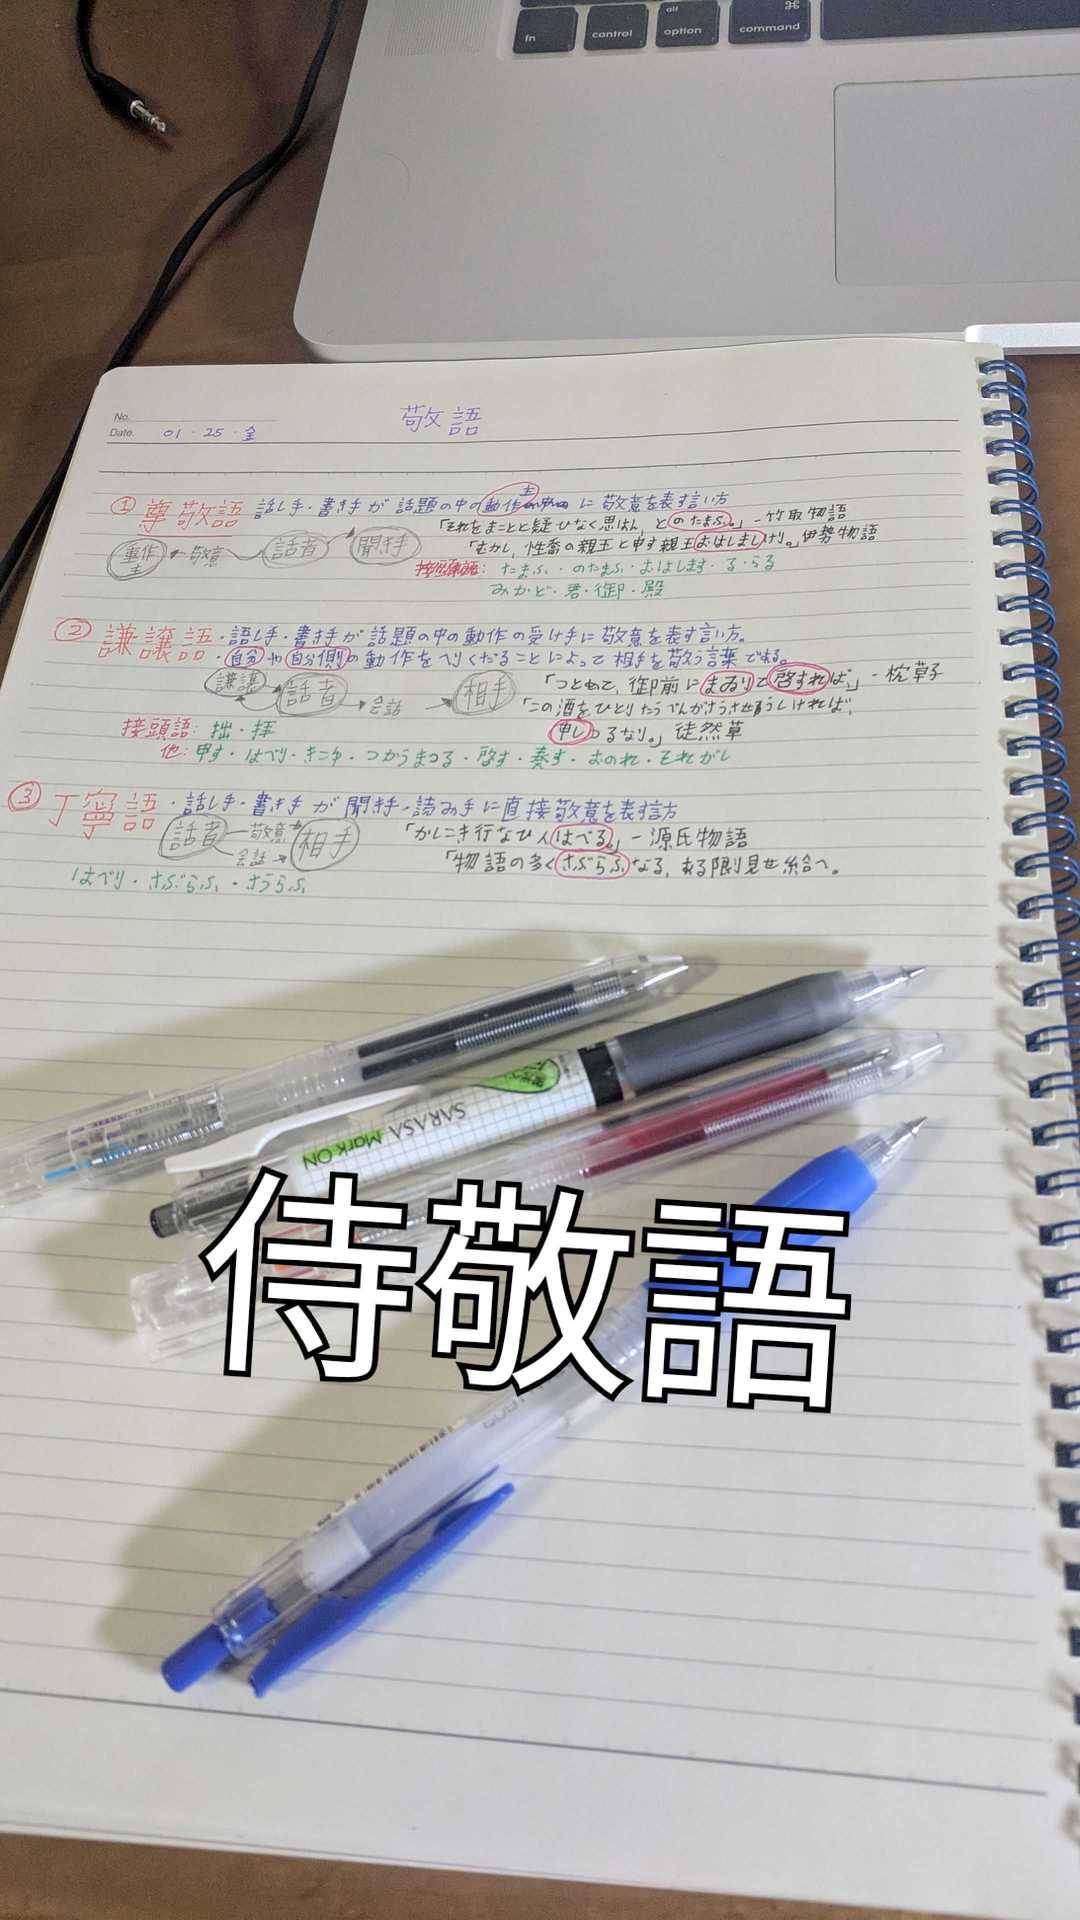 fn
control
alt
option
⌘
command
No.
Date. 01・25・金
敬語
① 尊敬語 話し手・書き手が話題の中の動作主に敬意を表す言い方
「それをまことと疑ひなく思はん」とのたまふ。」- 竹取物語
「むかし、惟喬の親王と申す親王おはしましけり。」伊勢物語
動作主 敬意 話者 聞き手
たまふ・のたまふ・おはします・る・らる
みかど・君・御・殿
② 謙譲語 ・話し手・書き手が話題の中の動作の受け手に敬意を表す言い方。
・自分や自分側の動作をへりくだることによって相手を敬う言葉である。
謙譲 話者 会話 相手
「つとめて、御前にまゐりて啓すれば、」- 枕草子
「この酒をひとりたうべんがさうざうしければ、
申しつるなり。」徒然草
接頭語: 拙・拝
他: 申す・はべり・きこゆ・つかうまつる・啓す・奏す・おのれ・それがし
③ 丁寧語 ・話し手・書き手が聞き手・読み手に直接敬意を表す言方
話者 敬意 会話 相手
「かしこき行なひ人はべる。」- 源氏物語
「物語の多くさぶらふなる、ある限り見せ給へ。
はべり・さぶらふ・さうらふ
SARASA
Mark ON
侍敬語